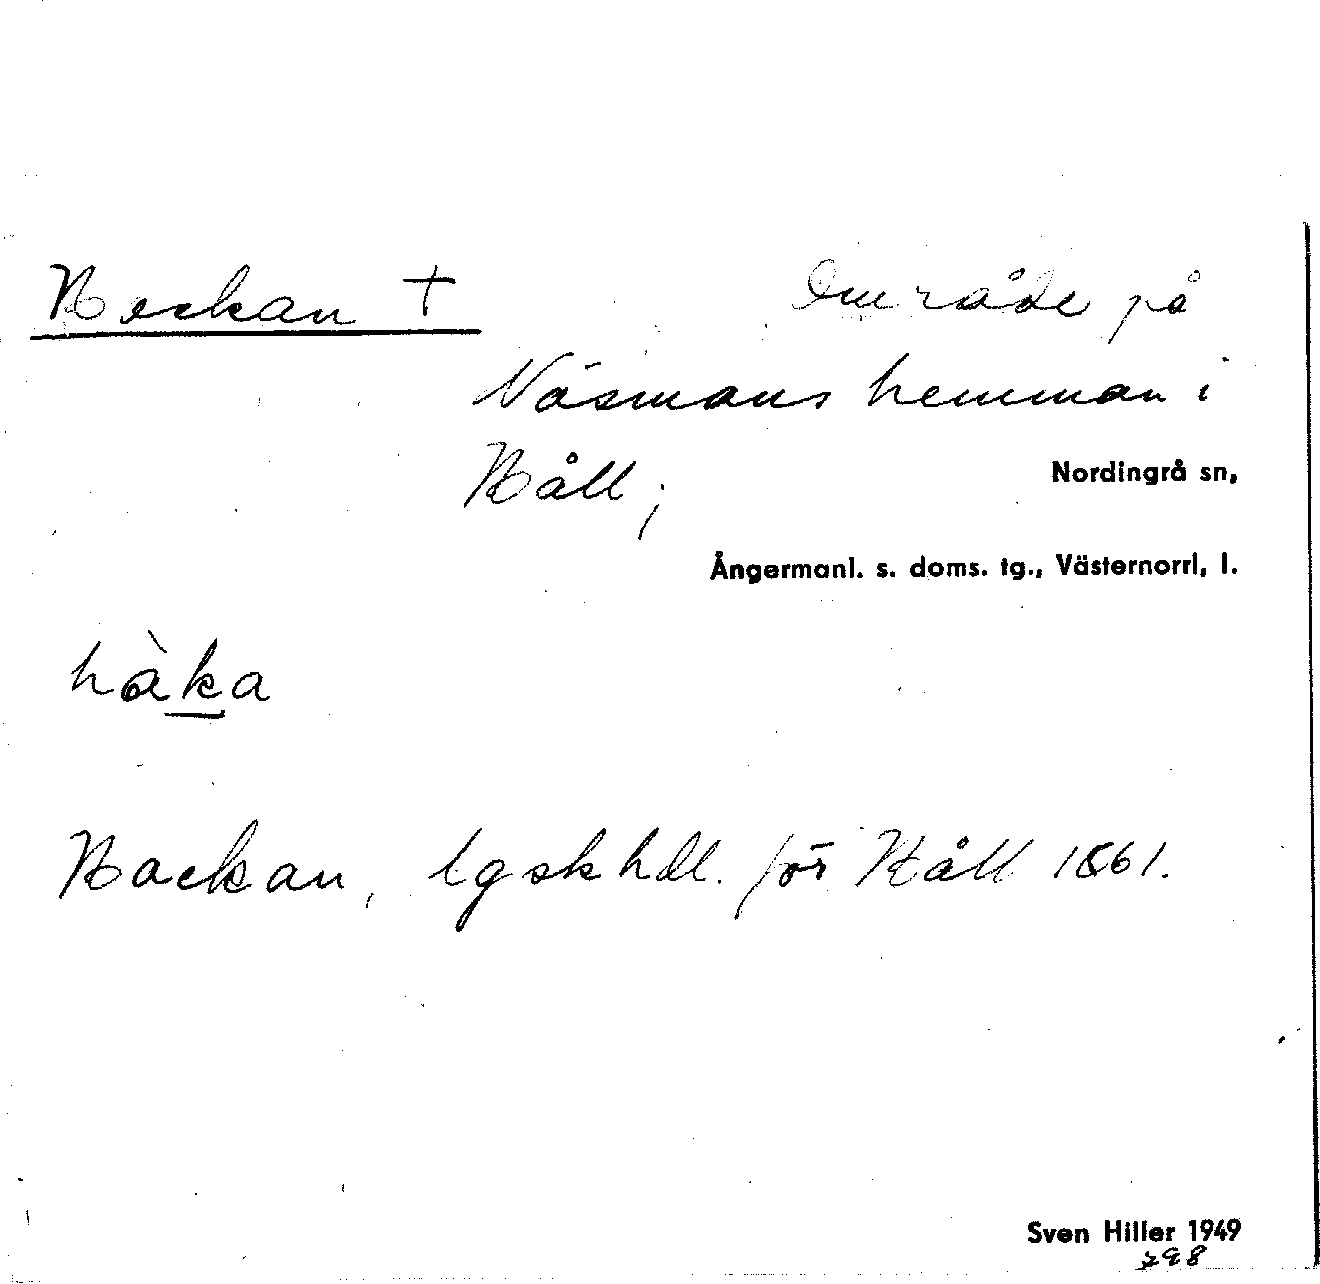 Hackan +
Område på
Näsmans hemman i
Håll;
Nordingrå sn,
Ångermanl. s. doms. tg., Västernorrl. l.
hàka
Hackan, lgskhdl. för Håll 1861.
Sven Hiller 1949
298